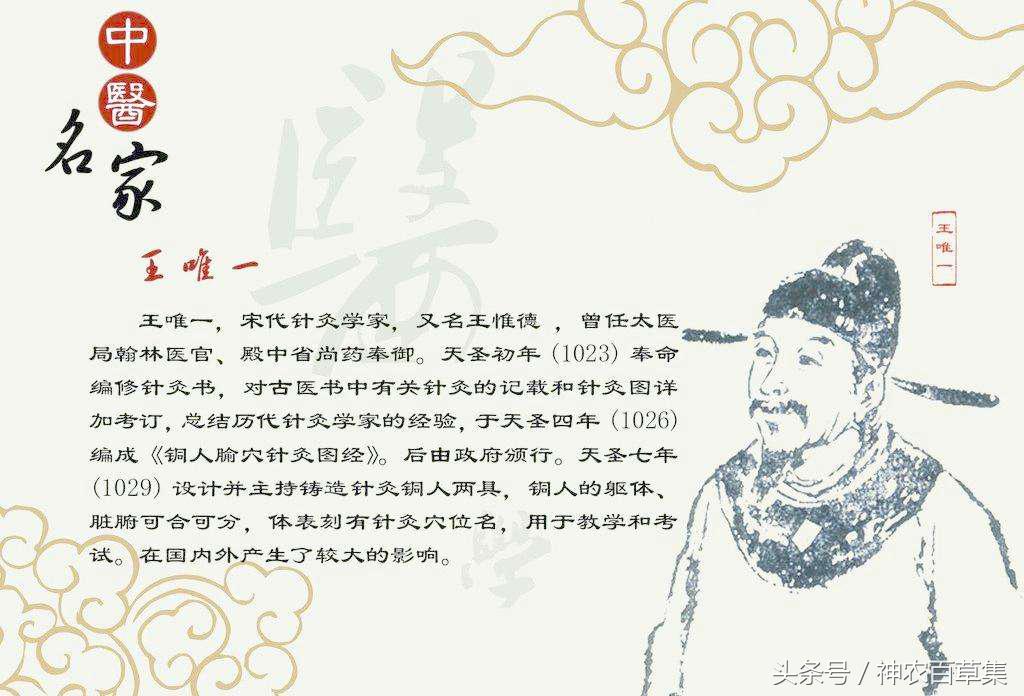 中醫
名家
王唯一
王唯一，宋代针灸学家，又名王惟德 ，曾任太医
局翰林医官、殿中省尚药奉御。天圣初年（1023）奉命
编修针灸书，对古医书中有关针灸的记载和针灸图详
加考订，总结历代针灸学家的经验，于天圣四年（1026）
编成《铜人腧穴针灸图经》。后由政府颁行。天圣七年
（1029）设计并主持铸造针灸铜人两具，铜人的躯体、
脏腑可合可分，体表刻有针灸穴位名，用于教学和考
试。在国内外产生了较大的影响。
王唯一
醫
學
头条号 / 神农百草集